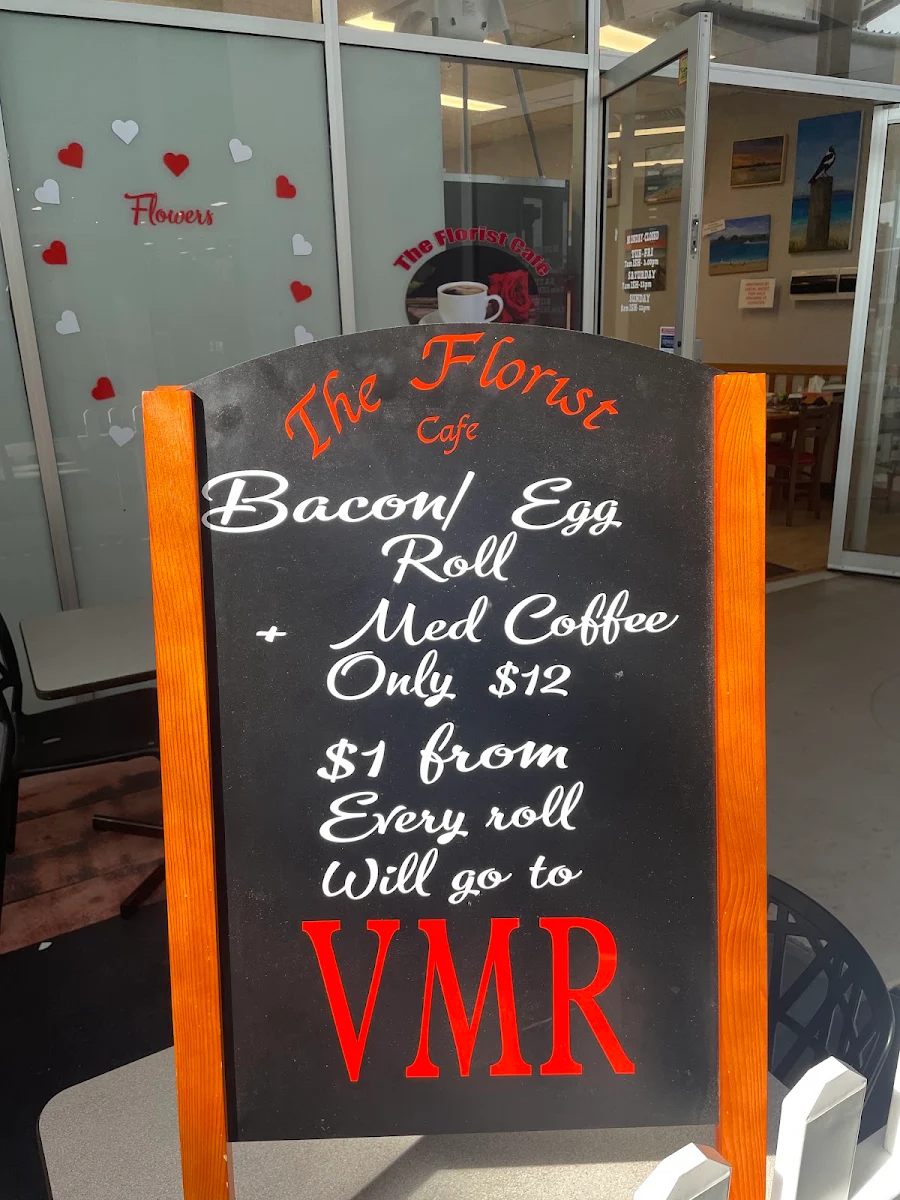 Flowers
The Florist Cafe
MONDAY-CLOSED
TUE-FRI
SATURDAY
SUNDAY
The Florist
Cafe
Bacon/ Egg
Roll
+ Med Coffee
Only $12
$1 from
Every roll
Will go to
VMR